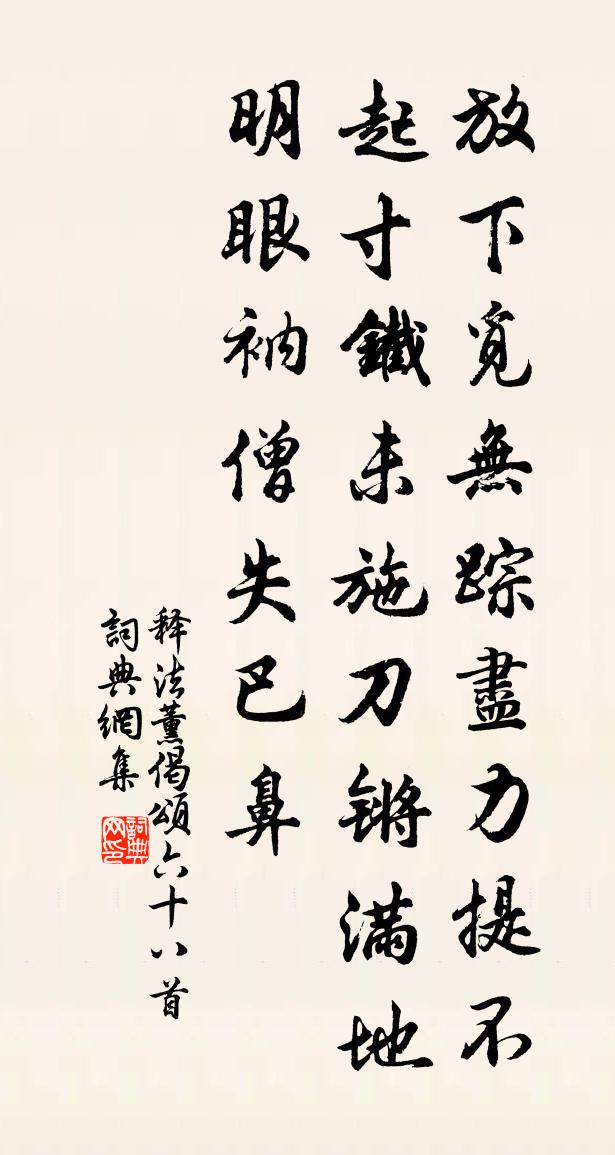 放下覓無踪盡力提不
起寸鐵未施刀锵满地
明眼衲僧失巴鼻
释法薰偈頌六十八首
詞典網集
詞典网印